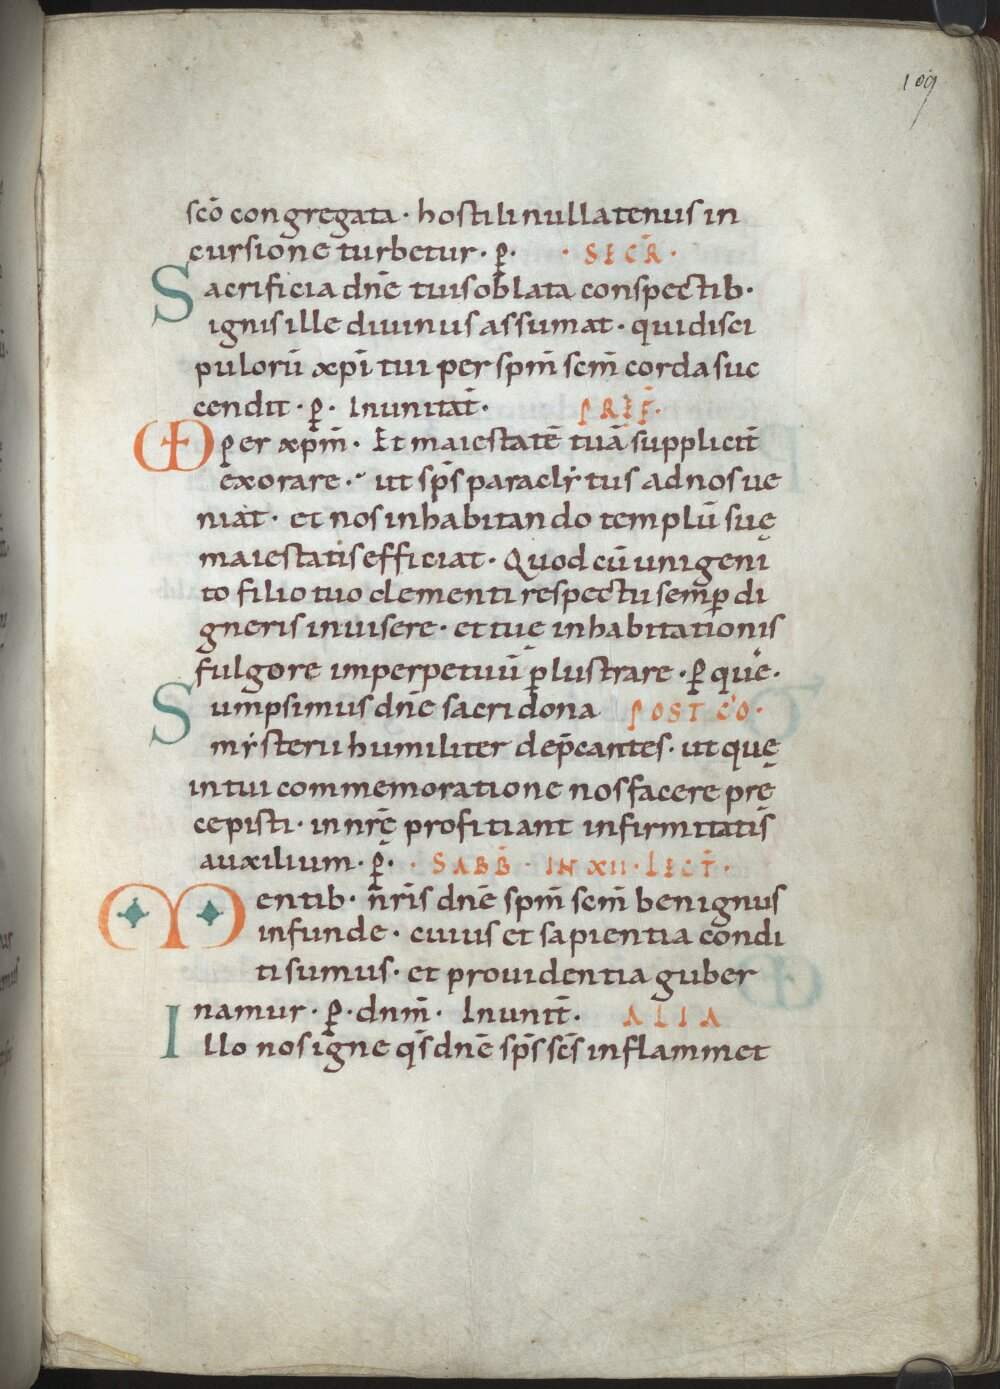 109
scō congregata · hostili nullatenus in
cursione turbetur · p̱ · · SECR̄ ·
Sacrificia dn̄e tuis oblata conspectib·
ignis ille diuinus assumat · qui disci
pulorū xp̄i tui per spm̄ scm̄ corda suc
cendit · p̱ · In unitat̄ · PREF̄ ·
VD per xp̄m · Et maiestatē tuā suppliciť
exorare · ut sp̄s paraclẏtus ad nos ue
niat · et nos inhabitando templū suę
maiestatis efficiat · Quod cū unigeni
to filio tuo clementi respectu semp̱ di
gneris inuisere · et tuę inhabitationis
fulgore imperpetuū p̱lustrare · p̱ quē ·
Sumpsimus dn̄e sacri dona POST CŌ ·
mẏsterii humiliter dep̄cantes · ut quę
in tui commemoratione nos facere prę
cepisti · in nr̄ę profitiant infirmitatis
auxilium · p̱ · · SABB̄ · IN XII · LECT̄ ·
Mentib· nr̄is dn̄e spm̄ scm̄ benignus
infunde · cuius et sapientia condi
ti sumus · et prouidentia guber
namur · p̱ · dnm̄ · In unit̄ · ALIA
Illo nos igne qs̄ dn̄e sp̄s scs̄ inflammet